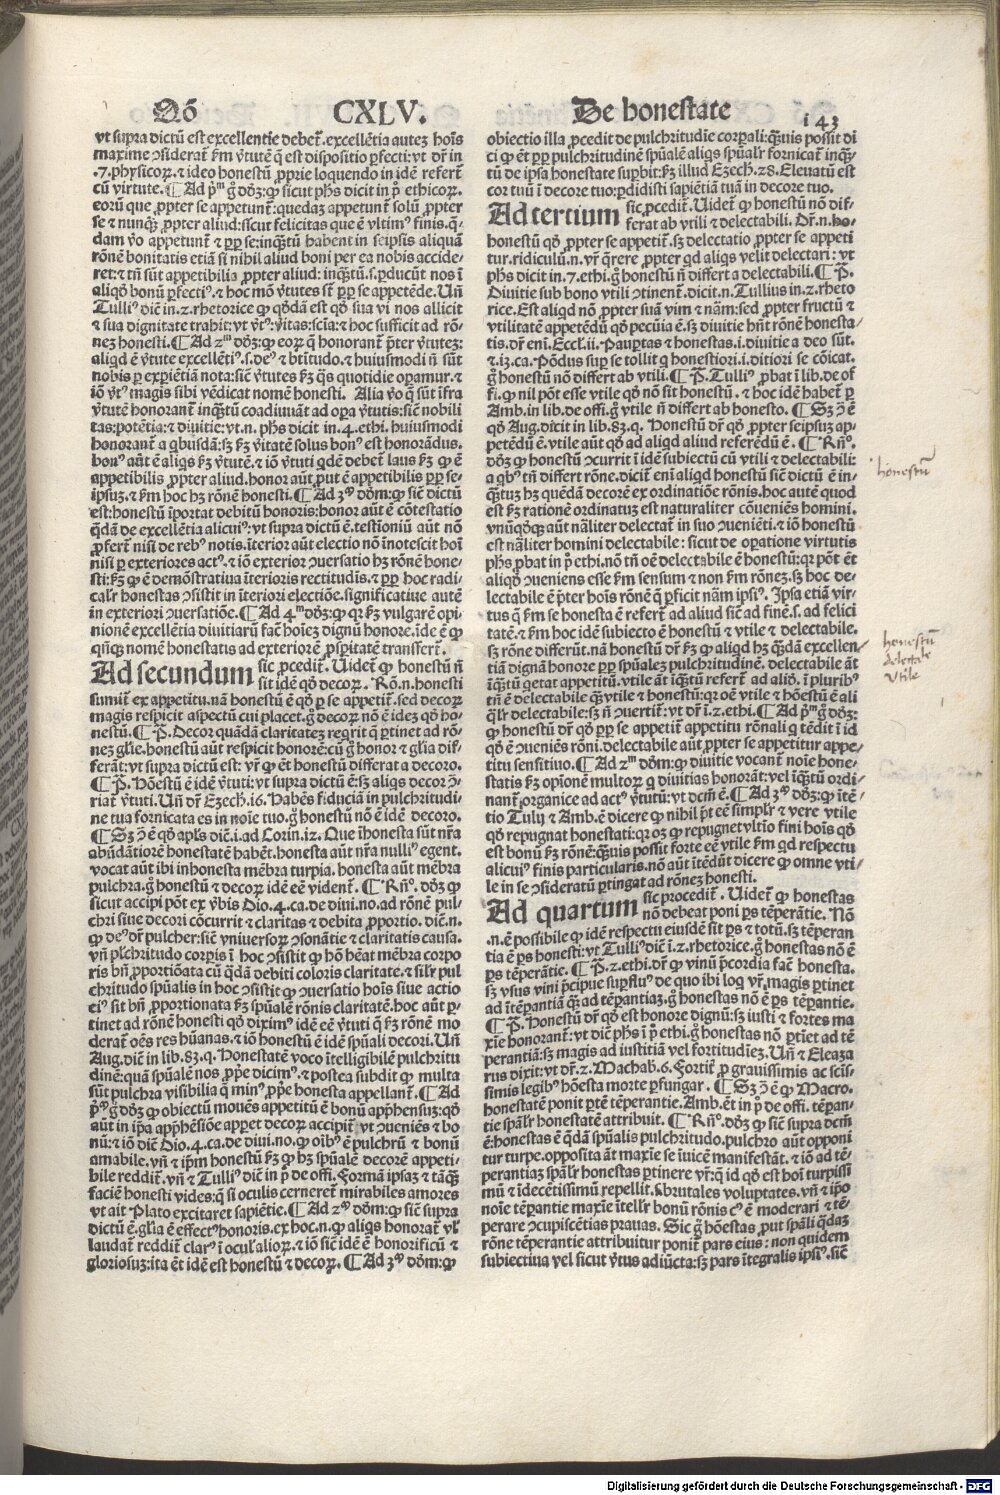 Qō CXLV. De honestate 143
vt supra dictū est excellentie debet᷑. excellētia autez hoīs
maxime ↄsiderat᷑ ẜm v̄tutē q̄ est dispositio ꝑfecti: vt dr̄ in
.7. physicoꝝ. ⁊ ideo honestū ꝓprie loquendo in idē refert᷑
cū virtute. ¶ Ad pᵐ g̊ dōz: ꝙ sicut ph̄s dicit in p̄ ethicoꝝ.
eorū que ꝓpter se appetunt᷑: quedaz appetunt᷑ solū ꝓpter
se ⁊ nunqᷓ ꝓpter aliud: sicut felicitas que ē vltimꝰ finis. q̄-
dam v̄o appetunt᷑ ⁊ ꝑꝑ se: inqᷓtū habent in seipsis aliquā
rōnē bonitatis etiā si nihil aliud boni per ea nobis accide-
ret: ⁊ tn̄ sūt appetibilia ꝓpter aliud: inqᷓtū. s. ꝑducūt nos ī
aliqd̄ bonū ꝑfectiꝰ. ⁊ hoc mō v̄tutes sūt ꝑꝑ se appetēde. Un̄
Tulliꝰ dic̄ in. 2. rhetorice ꝙ qd̄dā est qd̄ sua vi nos allicit
⁊ sua dignitate trahit: vt v̄tꝰ: v̄itas: scīa: ⁊ hoc sufficit ad rō-
nez honesti. ¶ Ad 2ᵐ dōz: ꝙ eoꝝ q̄ honorant᷑ p̄ter v̄tutez:
aliqd ē v̄tute excellētiꝰ. s. deꝰ ⁊ btītudo. ⁊ huiusmodi n̄ sūt
nobis ꝑ exꝑiētiā nota: sic̄ v̄tutes ẜz q̄s quotidie oꝑamur. ⁊
iō v̄tꝰ magis sibi vēdicat nomē honesti. Alia v̄o q̄ sūt īfra
v̄tutē honorant᷑ inqᷓtū coadiuuāt ad oꝑa v̄tutis: sic̄ nobili
tas: potētia: ⁊ diuitie: vt. n. ph̄s dicit in. 4. ethi. huiusmodi
honorant᷑ a qbusdā: sz ẜz v̄itatē solus bonꝰ est honorādus.
bonꝰ aūt ē aligs ẜz v̄tutē. ⁊ iō v̄tuti qdē debet᷑ laus ẜz ꝙ ē
appetibilis ꝓpter aliud. honor aūt ꝓut ē appetibilis ꝑꝑ se-
ipsuz. ⁊ ẜm hoc hz rōnē honesti. ¶ Ad 3ᵐ dōm: ꝙ sic̄ dictū
est: honestū īportat debitū honoris: honor aūt ē cōtestatio
q̄dā de excellētia alicuiꝰ: vt supra dictū ē. testioniū aūt nō
ꝓfert᷑ nisi de rebꝰ notis. īterior aūt electio nō īnotescit hoī
nisi ꝑ exteriores actꝰ. ⁊ iō exterior ↄuersatio hz rōnē hone-
sti: ẜz ꝙ ē demōstratiua īterioris rectitudīs. ⁊ ꝑꝑ hoc radi-
calr̄ honestas ↄsistit in īteriori electiōe. significatiue autē
in exteriori ↄuersatiōe. ¶ Ad 4ᵐ dōz: ꝙ qꝛ ẜz vulgarē opi-
nionē excellētia diuitiarū fac̄ hoīez dignū honore. īde ē ꝙ
qn̄qz nomē honestatis ad exteriorē ꝓsꝑitatē transfert᷑.
Ad secundum sic ꝓcedit᷑. Uidet᷑ ꝙ honestū n̄
sit idē qd̄ decoꝝ. Rō. n. honesti
sumit᷑ ex appetitu. nā honestū ē qd̄ ꝑ se appetit᷑. sed decoꝝ
magis respicit aspectū cui placet. g̊ decoꝝ nō ē idez qd̄ ho-
nestū. ¶ P̄. Decor quādā claritatez reqrit q̄ ꝑtinet ad rō-
nez glīe. honestū aūt respicit honorē: cū g̊ honor ⁊ glīa dif-
ferāt: vt supra dictū est: vr̄ ꝙ ⁊ honestū differat a decoro.
¶ P̄. Hōestū ē idē v̄tuti: vt supra dictū ē: sz aligs decor ↄ̄-
riat᷑ v̄tuti. Un̄ dr̄ Ezech. 16. Habēs fiduciā in pulchritudi-
ne tua fornicata es in noīe tuo. g̊ honestū nō ē idē decoro.
¶ Sz ↄ̄ ē qd̄ apl̄s dic̄. i. ad Corin. 12. Que īhonesta sūt nr̄a
abūdātiorē honestatē habēt. honesta aūt nr̄a nulliꝰ egent.
vocat aūt ibi inhonesta mēbra turpia. honesta aūt mēbra
pulchra. g̊ honestū ⁊ decoꝝ idē eē vident᷑. ¶ Rn̄º. dōz ꝙ
sicut accipi pōt ex v̄bis Dio. 4. ca. de diui. no. ad rōnē pul-
chri siue decori cōcurrit ⁊ claritas ⁊ debita ꝓportio. dic̄. n.
ꝙ deꝰ dr̄ pulcher: sic̄ vniuersoꝝ ↄsonātie ⁊ claritatis causa.
vn̄ pl̄chritudo corpis ī hoc ↄsistit ꝙ hō hēat mēbra corpo
ris bn̄ ꝓportiōata cū q̄dā debiti coloris claritate. ⁊ silr̄ pul
chritudo spūalis in hoc ↄsistit ꝙ ↄuersatio hoīs siue actio
eiꝰ sit bn̄ ꝓportionata ẜz spūalē rōnis claritatē. hoc aūt ꝑ-
tinet ad rōnē honesti qd̄ diximꝰ idē eē v̄tuti q̄ ẜz rōnē mo
derat᷑ oēs res hūanas. ⁊ iō honestū ē idē spūali decori. Un̄
Aug. dic̄ in lib. 83. q. Honestatē voco ītelligibilē pulchritu
dinē: quā spūalē nos ꝓpe dicimꝰ. ⁊ postea subdit ꝙ multa
sūt pulchra visibilia q̄ minꝰ ꝓpe honesta appellant᷑. ¶ Ad
pᵐ g̊ dōz ꝙ obiectū mouēs appetitū ē bonū apprehensuz: qd̄
aūt in ip̄a apprehēsiōe apparet decoꝝ accipit᷑ vt ↄueniēs ⁊ bo
nū: ⁊ iō dic̄ Dio. 4. ca. de diui. no. ꝙ oībꝰ ē pulchrū ⁊ bonū
amabile. vn̄ ⁊ ip̄m honestū ẜz ꝙ hz spūalē decorē appeti-
bile reddit᷑. vn̄ ⁊ Tulliꝰ dic̄ in p̄ de offi. Formā ipsaz ⁊ tāqᷓ
faciē honesti vides: q̄ si oculis cerneret᷑ mirabiles amores
vt ait Plato excitaret sapiētie. ¶ Ad 2ᵐ dōm: ꝙ sic̄ supra
dictū ē. glīa ē effectꝰ honoris. ex hoc. n. ꝙ aligs honorat᷑ vl̄
laudat᷑ reddit᷑ clarꝰ ī ocul' alioꝝ. ⁊ iō sic̄ idē ē honorificū ⁊
gloriosuz: ita ēt idē est honestū ⁊ decoꝝ. ¶ Ad 3ᵐ dōm: ꝙ
obiectio illa ꝓcedit de pulchritudīe corꝑali: qᷓuis possit di
ci ꝙ ēt ꝑꝑ pulchritudinē spūalē aligs spūalr̄ fornicat᷑ inqᷓ-
tū de ipsa honestate suꝑbit: ẜz illud Ezech. 28. Eleuatū est
cor tuū ī decore tuo: ꝑdidisti sapiētiā tuā in decore tuo.
Ad tertium sic ꝓcedit᷑. Uidet᷑ ꝙ honestū nō dif-
ferat ab vtili ⁊ delectabili. Dr̄. n. ho-
honestū qd̄ ꝓpter se appetit᷑. sz delectatio ꝓpter se appeti
tur. ridiculū. n. vr̄ q̄rere ꝓpter qd aligs velit delectari: vt
ph̄s dicit in. 7. ethi. g̊ honestū n̄ differt a delectabili. ¶ P̄.
Diuitie sub bono vtili ↄtinent᷑. dicit. n. Tullius in. 2. rheto
rice. Est aliqd nō ꝓpter suā vim ⁊ nām: sed ꝓpter fructū ⁊
vtilitatē appetēdū qd̄ pecūia ē. sz diuitie hn̄t rōnē honesta-
tis. dr̄ eni. Eccl. ii. Pauꝑtas ⁊ honestas. i. diuitie a deo sūt.
⁊. 13. ca. Pōdus suꝑ se tollit q honestiori. i. ditiori se cōicat.
g̊ honestū nō differt ab vtili. ¶ P̄. Tulliꝰ ꝓbat ī lib. de of
fi. ꝙ nil pōt esse vtile qd̄ nō sit honestū. ⁊ hoc idē habet᷑ ꝑ
Amb. in lib. de offi. g̊ vtile n̄ differt ab honesto. ¶ Sz ↄ̄ ē
qd̄ Aug. dicit in lib. 83. q. Honestū dr̄ qd̄ ꝓpter seipsuz ap-
petēdū ē. vtile aūt qd̄ ad aliqd aliud referēdū ē. ¶ Rn̄º.
dōz ꝙ honestū ↄcurrit ī idē subiectū cū vtili ⁊ delectabili:
a qbꝰ tn̄ differt rōne. dicit᷑ eni aliqd honestū sic̄ dictū ē in-
qᷓtuz hz quēdā decorē ex ordinatiōe rōnis. hoc autē quod
est ẜz rationē ordinatuz est naturaliter cōueniēs homini.
vnūqd̄qz aūt nāliter delectat᷑ in suo ↄueniēti. ⁊ iō honestū
est nāliter homini delectabile: sicut de operatione virtutis
ph̄s ꝓbat in p̄ ethi. nō tn̄ oē delectabile ē honestū: qꝛ pōt ēt
aliqd̄ ↄueniens esse ẜm sensum ⁊ non ẜm rōnez. sz hoc de-
lectabile ē p̄ter hoīs rōnē q̄ ꝑficit nām ipsiꝰ. Ipsa etiā vir-
tus q̄ ẜm se honesta ē refert᷑ ad aliud sic̄ ad finē. s. ad felici
tatē. ⁊ ẜm hoc idē subiecto ē honestū ⁊ vtile ⁊ delectabile.
sz rōne differūt. nā honestū dr̄ ẜz ꝙ aliqd hz qᷓdā excellen-
tiā dignā honore ꝑꝑ spūalez pulchritudinē. delectabile āt
īqᷓtū qetat appetitū. vtile āt īqᷓtū refert᷑ ad aliō. ī pluribꝰ
tn̄ ē delectabile qᷓ vtile ⁊ honestū: qꝛ oē vtile ⁊ hōestū ē ali
qlr̄ delectabile: sz n̄ ↄuertit᷑: vt dr̄ ī. 2. ethi. ¶ Ad pᵐ g̊ dōz:
ꝙ honestū dr̄ qd̄ ꝑꝑ se appetit᷑ appetitu rōnali q tēdit ī id
qd̄ ē ↄueniēs rōni. delectabile aūt ꝓpter se appetitur appe-
titu sensitiuo. ¶ Ad 2ᵐ dōm: ꝙ diuitie vocant᷑ noīe hone-
statis ẜz opionē multoꝝ q diuitias honorāt: vel īqᷓtū ordi-
nant᷑ organice ad actꝰ v̄tutū: vt dcm̄ ē. ¶ Ad 3ᵐ dōz: ꝙ ītē-
tio Tulij ⁊ Amb. ē dicere ꝙ nihil pōt eē simplr̄ ⁊ vere vtile
qd̄ repugnat honestati: qꝛ oꝫ ꝙ repugnet vltīo fini hoīs qd̄
est bonū ẜz rōnē: qᷓuis possit forte eē vtile ẜm qd respectu
alicuiꝰ finis particularis. nō aūt ītēdūt dicere ꝙ omne vti-
le in se ↄsideratū ꝑtingat ad rōnez honesti.
Ad quartum sic procedit᷑. Uidet᷑ ꝙ honestas
nō debeat poni ꝑs tēꝑātie. Nō
. n. ē possibile ꝙ idē respectu eiusdē sit ꝑs ⁊ totū. sz tēꝑan
tia ē ꝑs honesti: vt Tulliꝰ dic̄ ī. 2. rhetorice. g̊ honestas nō ē
ꝑs tēꝑātie. ¶ P̄. 2. ethi. dr̄ ꝙ vinū p̄cordia fac̄ honesta.
sz vsus vini p̄cipue suꝑfluꝰ de quo ibi loq vr̄, magis ꝑtinet
ad ītēꝑantiā qᷓ ad tēꝑantiaz. g̊ honestas nō ē ꝑs tēꝑantie.
¶ P̄. Honestū dr̄ qd̄ est honore dignū: sz iusti ⁊ fortes ma
xīe honorant᷑: vt dic̄ ph̄s ī p̄ ethi. g̊ honestas nō ꝑtīet ad tē
perantiā: sz magis ad iustitiā vel fortitudīez. Un̄ ⁊ Eleaza
rus dixit: vt dr̄. 2. Machab. 6. Fortit᷑ ꝓ grauissimis ac scīs-
simis legibꝰ hōesta morte ꝑfungar. ¶ Sz ↄ̄ ē ꝙ Macro.
honestatē ponit ꝑtē tēꝑantie. Amb. ēt in p̄ de offi. tēꝑan-
tie spālr̄ honestatē attribuit. ¶ Rn̄º. dōz ꝙ sic̄ supra dcm̄
ē: honestas ē q̄dā spūalis pulchritudo. pulchro aūt opponi
tur turpe. opposita āt maxīe se īuicē manifestāt. ⁊ iō ad tē-
perantiaz spālr̄ honestas ꝑtinere vr̄: q̄ id qd̄ est hoī turpissi
mū ⁊ īdecētissimū repellit. s. brutales voluptates. vn̄ ⁊ ip̄o
noīe tēꝑantie maxīe ītellr̄ bonū rōnis cꝰ ē moderari ⁊ tē-
perare ↄcupiscētias prauas. Sic g̊ hōestas ꝓut spāli q̄daz
rōne tēperantie attribuitur ponit᷑ pars eius: non quidem
subiectiua vel sicut v̄tus adiūcta: sz pars ītegralis ipsiꝰ. sic̄
honestū
honestū
delectabile
vtile
Digitalisierung gefördert durch die Deutsche Forschungsgemeinschaft - DFG